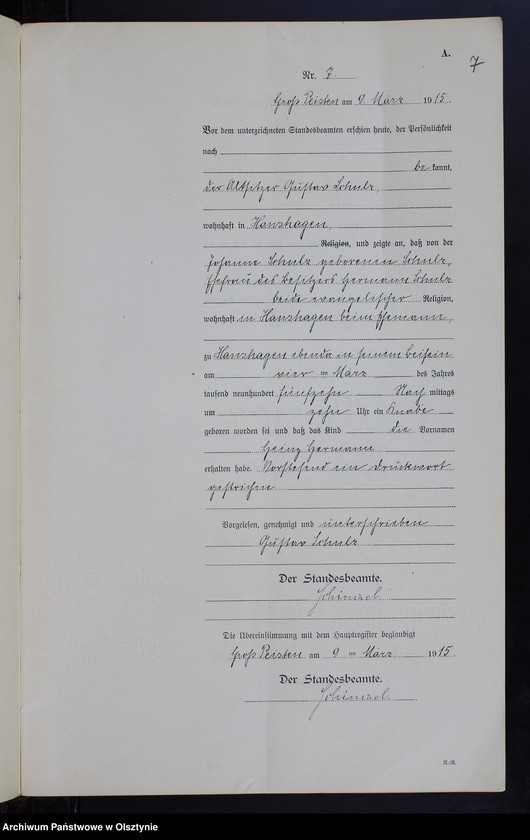 A.
7
Nr. 7
Groß Peisten am 9. März 1915.
Vor dem unterzeichneten Standesbeamten erschien heute, der Persönlichkeit
nach
be kannt,
der Altsitzer Gustav Schulz,
wohnhaft in Hanshagen,
Religion, und zeigte an, daß von der
Johanne Schulz geborenen Schulz,
Ehefrau des Besitzers Hermann Schulz
beide evangelischer Religion,
wohnhaft in Hanshagen beim Ehemann,
zu Hanshagen ebenda in seinem Beisein
am vier ten März des Jahres
tausend neunhundert fünfzehn Nach mittags
um zehn Uhr ein Knabe
geboren worden sei und daß das Kind die Vornamen
Heinz Hermann
erhalten habe. Vorstehend ein Druckwort
gestrichen.
Vorgelesen, genehmigt und unterschrieben
Gustav Schulz
Der Standesbeamte.
Die Übereinstimmung mit dem Hauptregister beglaubigt
Groß Peisten am 9 ten März 1915.
Der Standesbeamte.
Archiwum Państwowe w Olsztynie